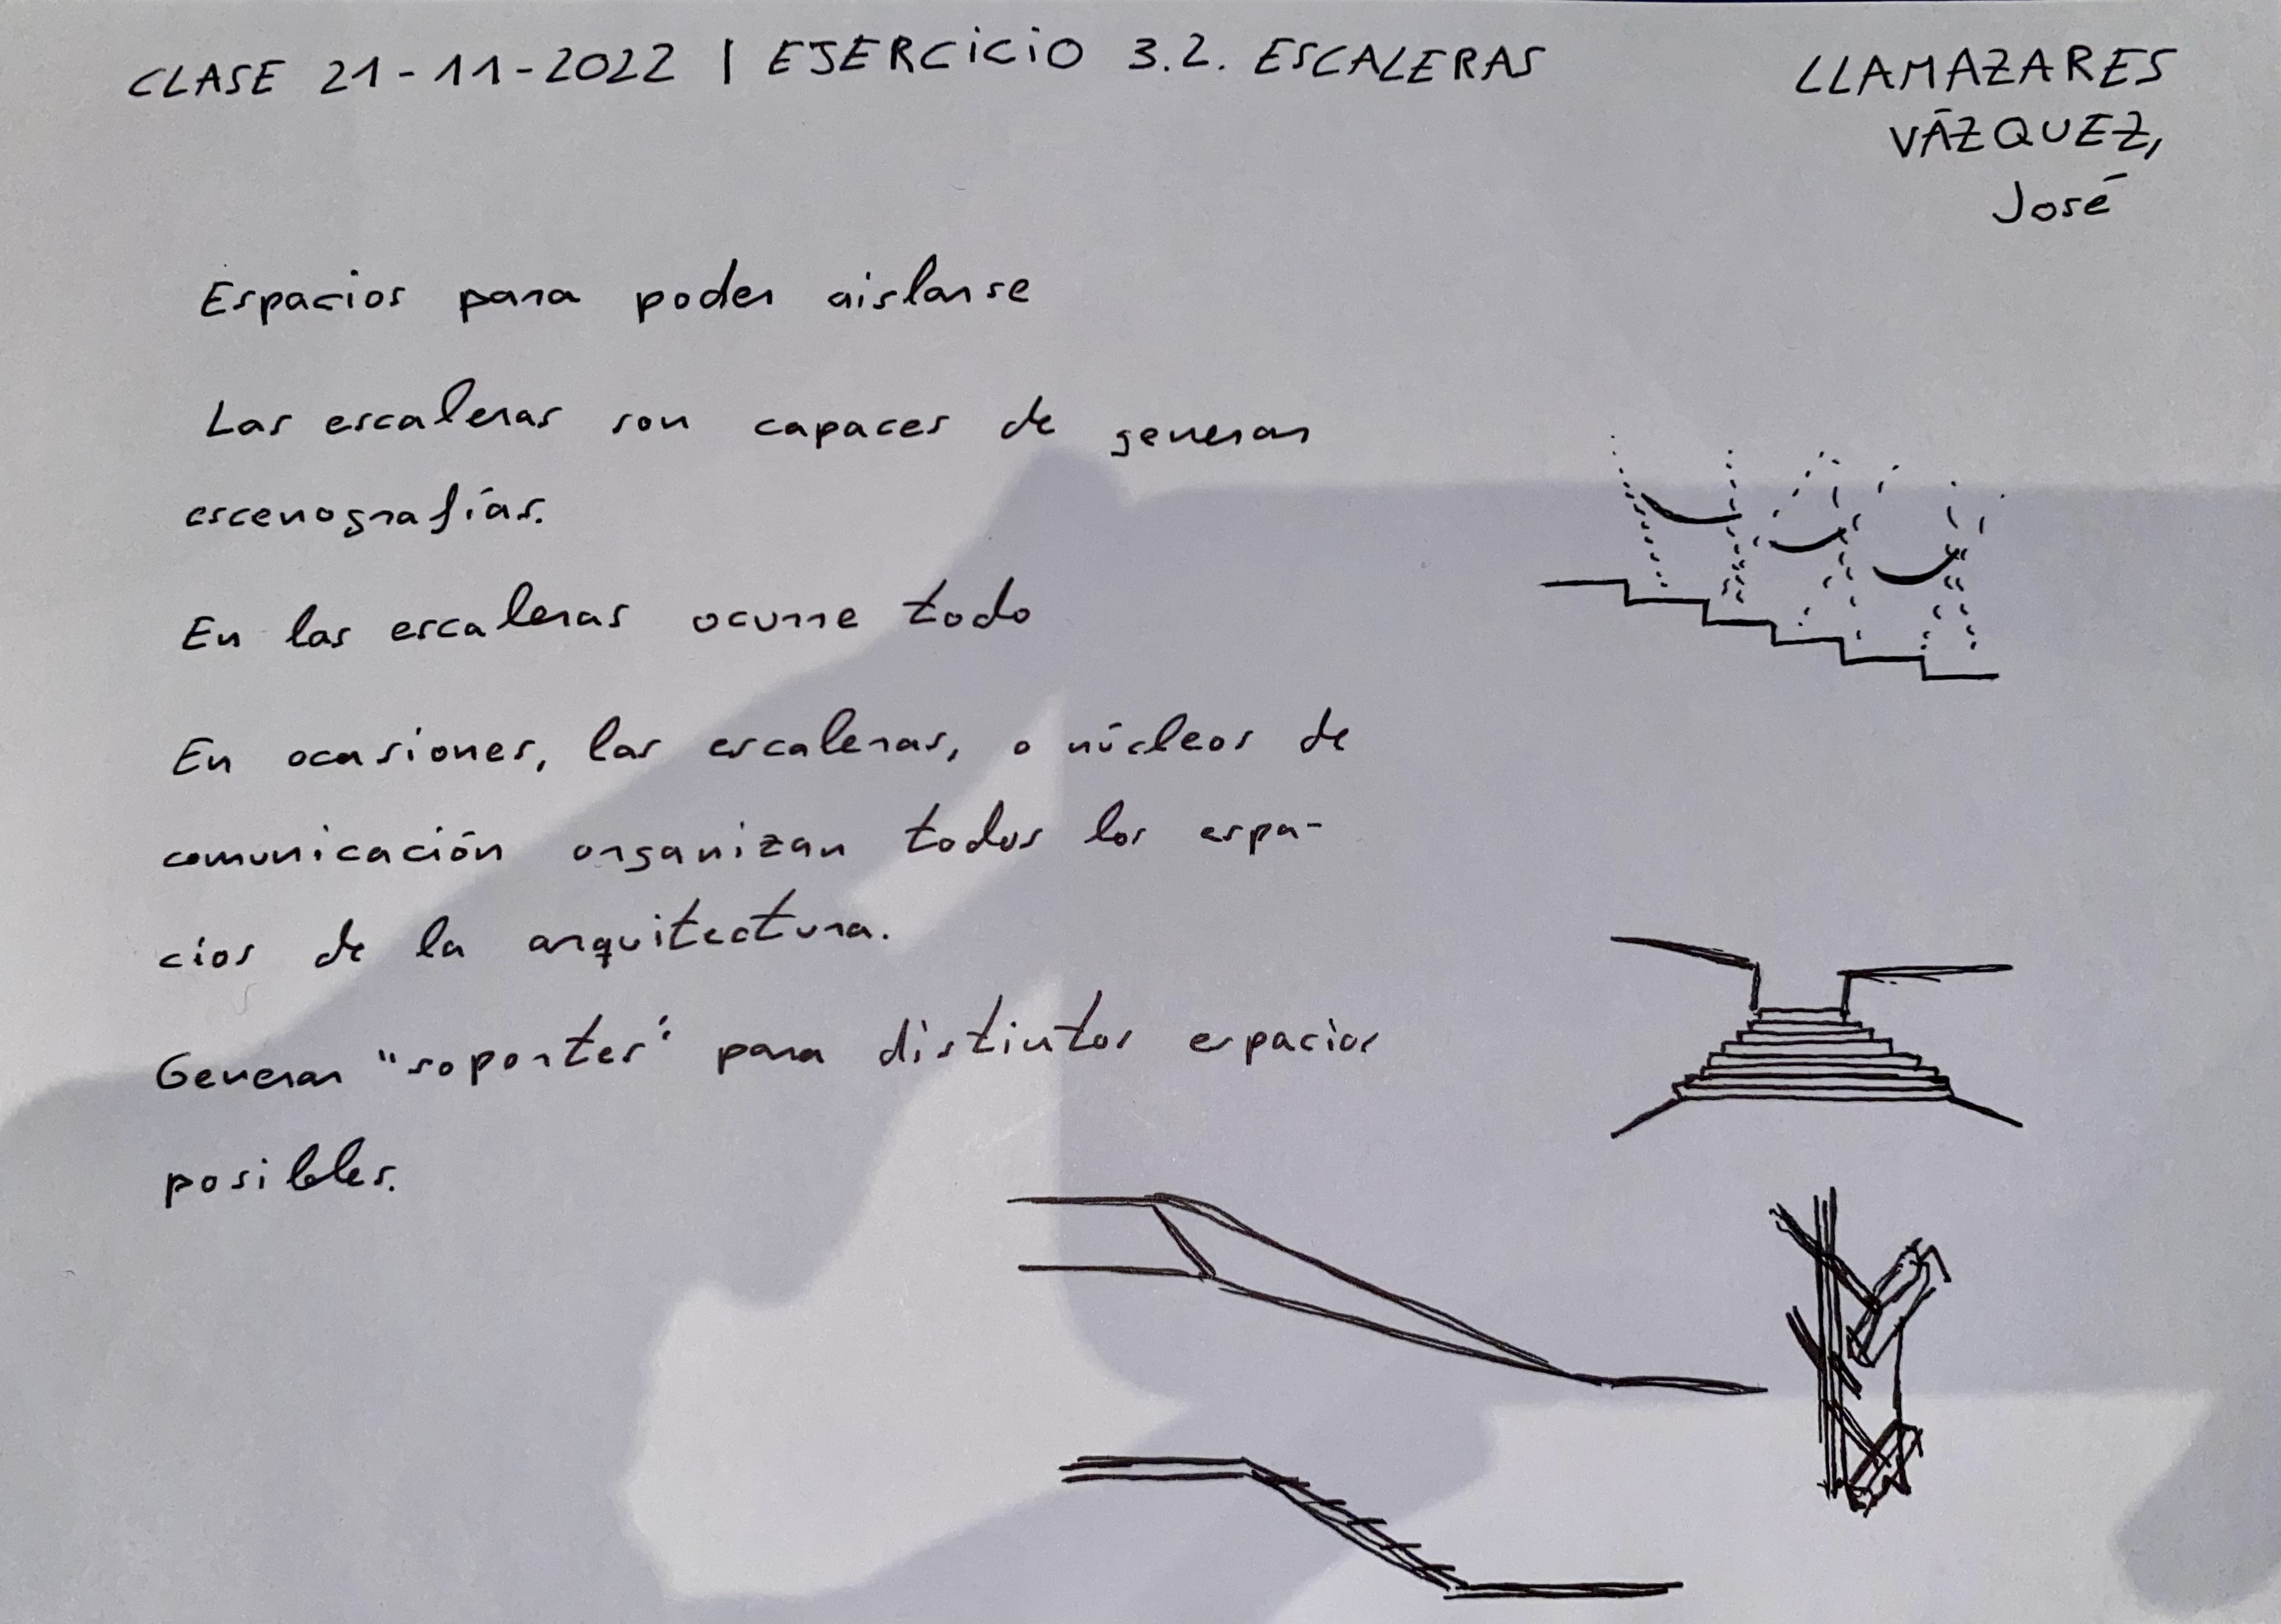 CLASE 21-11-2022 | EJERCICIO 3.2. ESCALERAS
LLAMAZARES
VÁZQUEZ,
José
Espacios para poder aislarse
Las escaleras son capaces de generar
escenografías.
En las escaleras ocurre todo
En ocasiones, las escaleras, o núcleos de
comunicación organizan todos los espa-
cios de la arquitectura.
Generar "soportes" para distintos espacios
posibles.